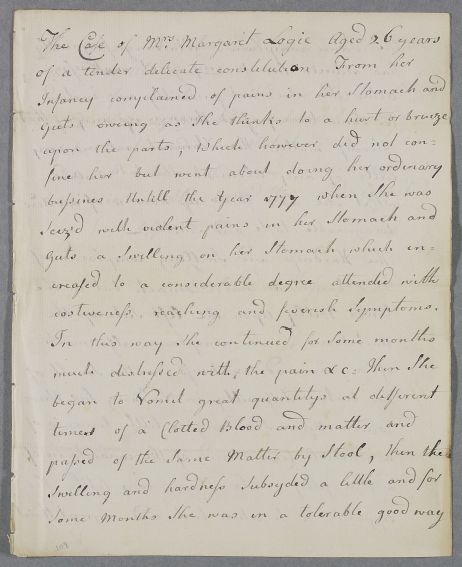 The Case of Mrs. Margaret Logie Aged 26 years
of a tender delicate constitution From her
Infancy complained of pains in her Stomach and
Guts, owing as She thinks to a hurt or bruize
upon the parts, which however did not con-
fine her but went about doing her ordinary
bussines Untill the Year 1777 when She was
Seiz'd with violent pains in her Stomach and
Guts a Swelling on her Stomach which in-
creased to a considerable degree attended with
costiveness, reaching and feverish Symptoms.
In this way She continued for Some months
much distressed with the pain &c: Then She
began to Vomit great quantitys at different
times of a Clotted Blood and matter and
passed of the Same Matter by Stool, then the
Swelling and hardness Subsyded a little and for
Some Months She was in a tolerable good way